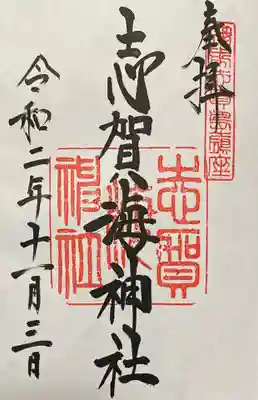 奉拝
志賀海神社
令和二年十一月三日
志賀
海
神社